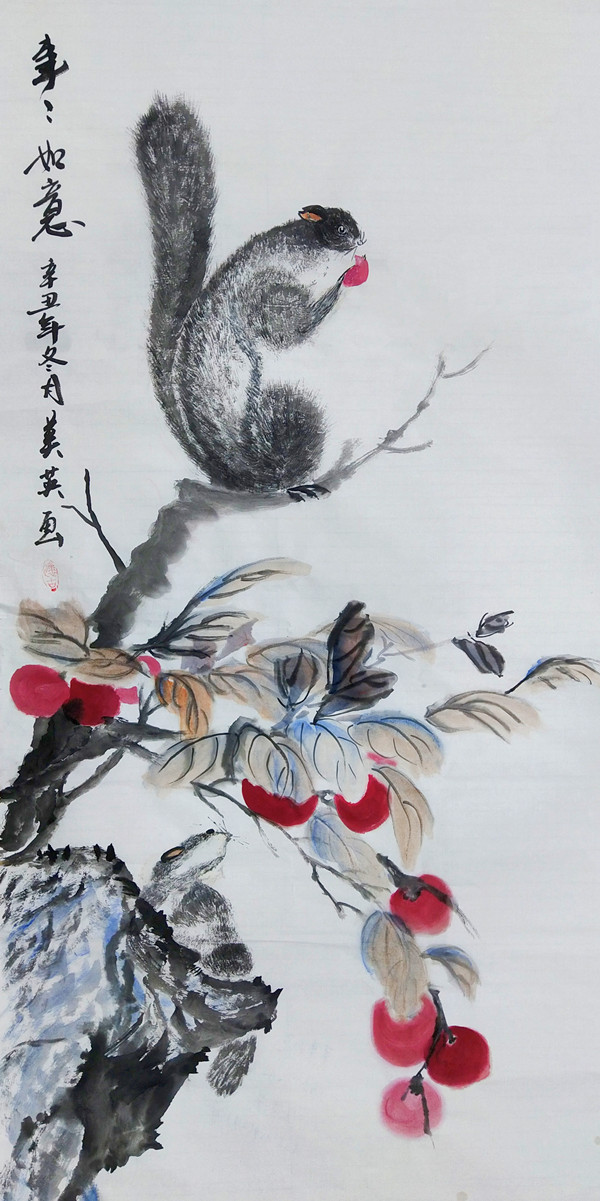 事〻如意 辛丑年冬月美英画